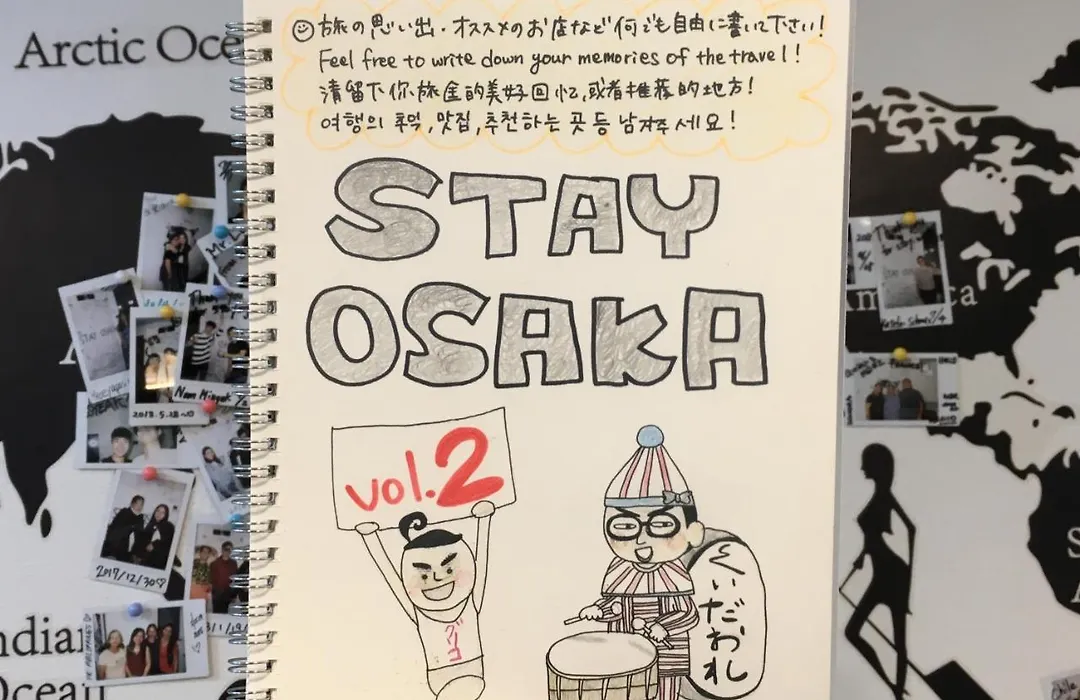 旅の思い出・オススメのお店など何でも自由に書いて下さい!
Feel free to write down your memories of the travel!
清留下你旅途的美好回忆,或者推荐的地方!
여행의 추억,맛집,추천하는 곳 등 남겨주세요!
STAY
OSAKA
vol.2
グリコ
くいだおれ
Arctic Oce
2018.5.28
Nam Mingyok
2017/12/30♡
ndian
Ocean